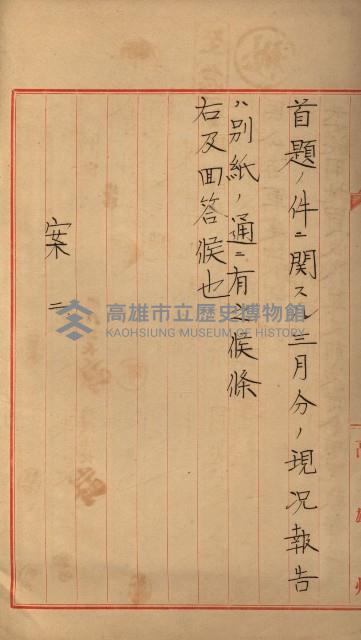 首題ノ件ニ関スル三月分ノ現況報告
ハ別紙ノ通ニ有之候條
右及回答候也
案 二
高雄市立歷史博物館
KAOHSIUNG MUSEUM OF HISTORY
高雄州